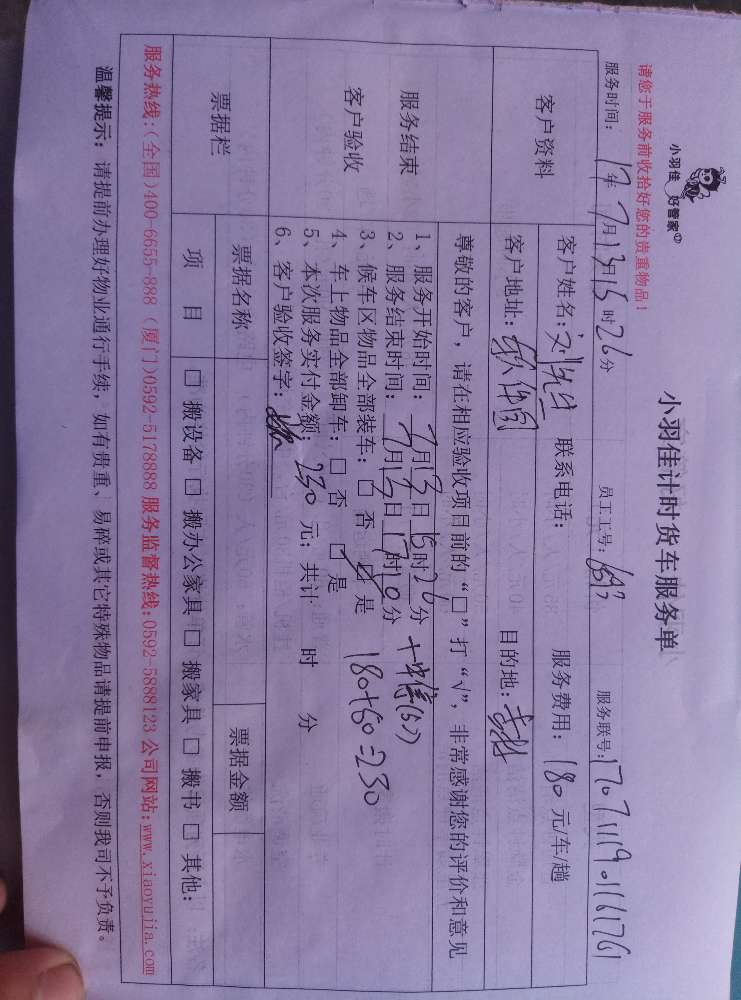 小羽佳 好管家
小羽佳计时货车服务单
请您于服务前收拾好您的贵重物品！
服务时间：17年7月13日15时26分 员工工号： 服务联号：
客户资料
客户姓名：刘先生 联系电话： 服务费用：180元/车/趟
客户地址：软件园 目的地：
尊敬的客户，请在相应验收项目前的“□”打“√”，非常感谢您的评价和意见
服务结束
客户验收
1、服务开始时间：7月13日15时26分
2、服务结束时间：7月13日17时10分
3、候车区物品全部装车：□ 否 ☑ 是
4、车上物品全部卸车：□ 否 ☑ 是
180+50=230
5、本次服务实付金额：230元；共计 时 分
6、客户验收签字：
票据栏
票据名称 票据金额
项 目 □ 搬设备 □ 搬办公家具 □ 搬家具 □ 搬书 □ 其他：
服务热线：(全国)400-6655-888 (厦门)0592-5178888 服务监督热线：0592-5888123 公司网站：www.xiaoyujia.com
温馨提示：请提前办理好物业通行手续，如有贵重、易碎或其它特殊物品请提前申报，否则我司不予负责。